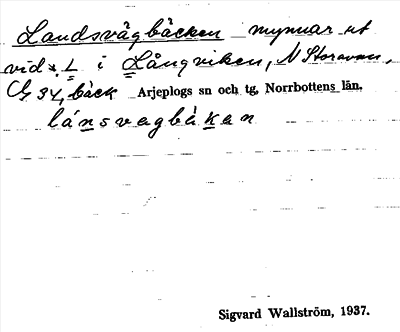 Landsvägbäcken mynnar ut
vid 1 i Långviken, N Storavan,
G 34, bäck Arjeplogs sn och tg, Norrbottens län.
lánsvagbàkan
Sigvard Wallström, 1937.